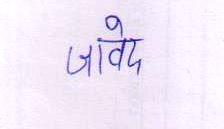 जावेद